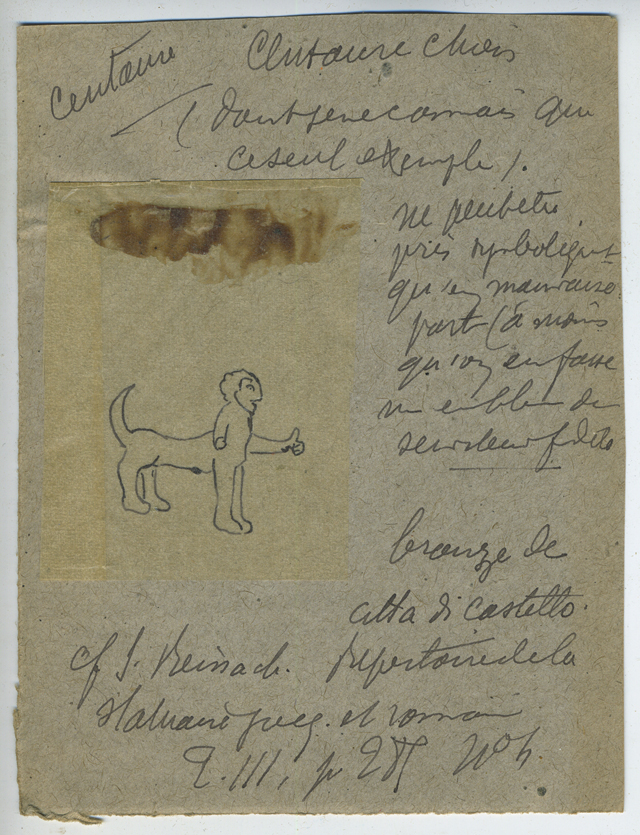 centaure
Centaure chien
(dont je ne connais que
ce seul exemple).
ne peut être
pris symboliqut
qu'en mauvaise
part (à moins
qu'on en fasse
un emblème de
serviteur fidèle
bronze de
citta di castello.
cf S. Reinach. Répertoire de la
statuaire grecq. et romain
T. III, p 285 No